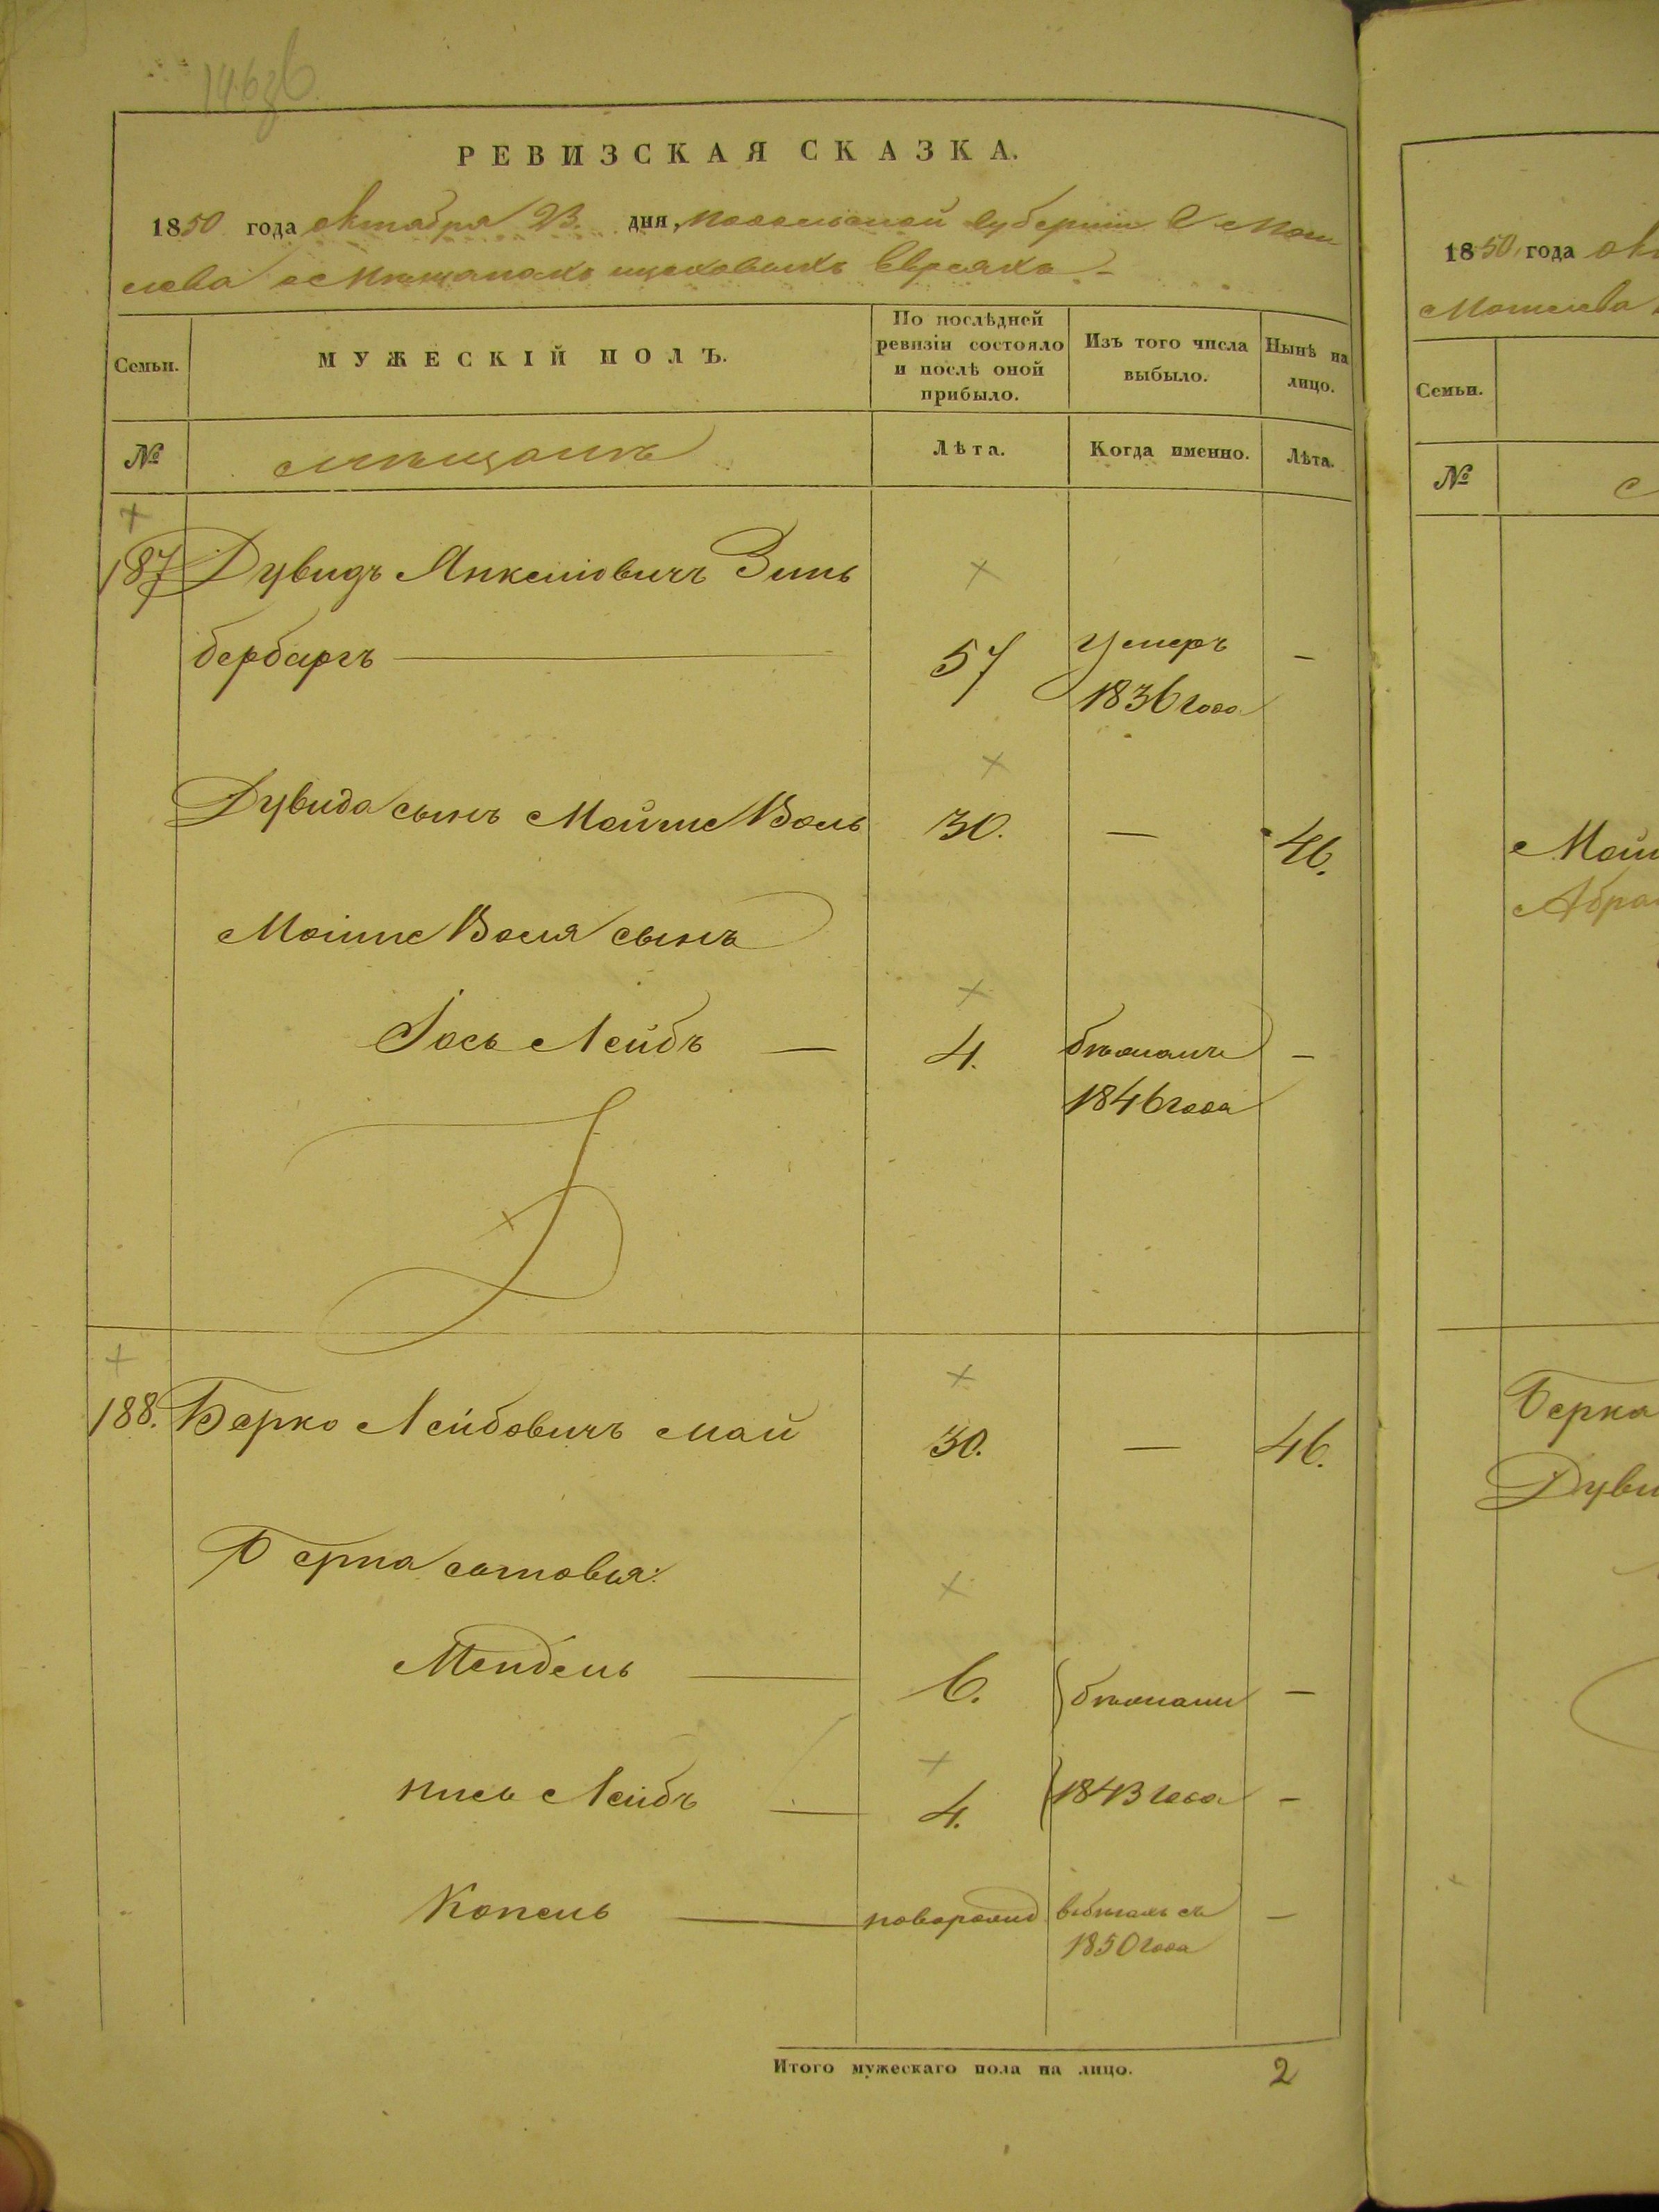 РЕВИЗСКАЯ СКАЗКА.
1850 года октября 23. дня, Подольской губерніи г. Моги
лева о мѣщанахъ цеховыхъ Евреяхъ
Семьи.
МУЖЕСКІЙ ПОЛЪ.
По послѣдней ревизіи состояло и послѣ оной прибыло.
Изъ того числа выбыло.
Нынѣ на лицо.
№
мѣщанъ
Лѣта.
Когда именно.
Лѣта.
187 Дувидъ Янкеліовичъ Зиль
бербаргъ — 57 Умеръ —
1836 года
Дувида сынъ Мойше Воль 30. — 46.
Моіше Воля сынъ
Іось Лейбъ — 4. бѣжалъ —
1846 года
188. Берко Лейбовичъ Май 30. — 46.
Берка сыновья:
Мендель — 6. бѣжали —
Лейбъ — 4. 1843 года —
Копель — новорожд —
1850 года
Итого мужескаго пола на лицо. 2
1850 года
Могилева
Семьи.
№
Мойш
Абра
Берка
Дуви